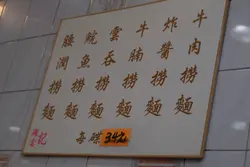 牛肉撈麵
炸醬撈麵
牛腩撈麵
雲吞撈麵
皖魚撈麵
腰潤撈麵
每碟34元
記